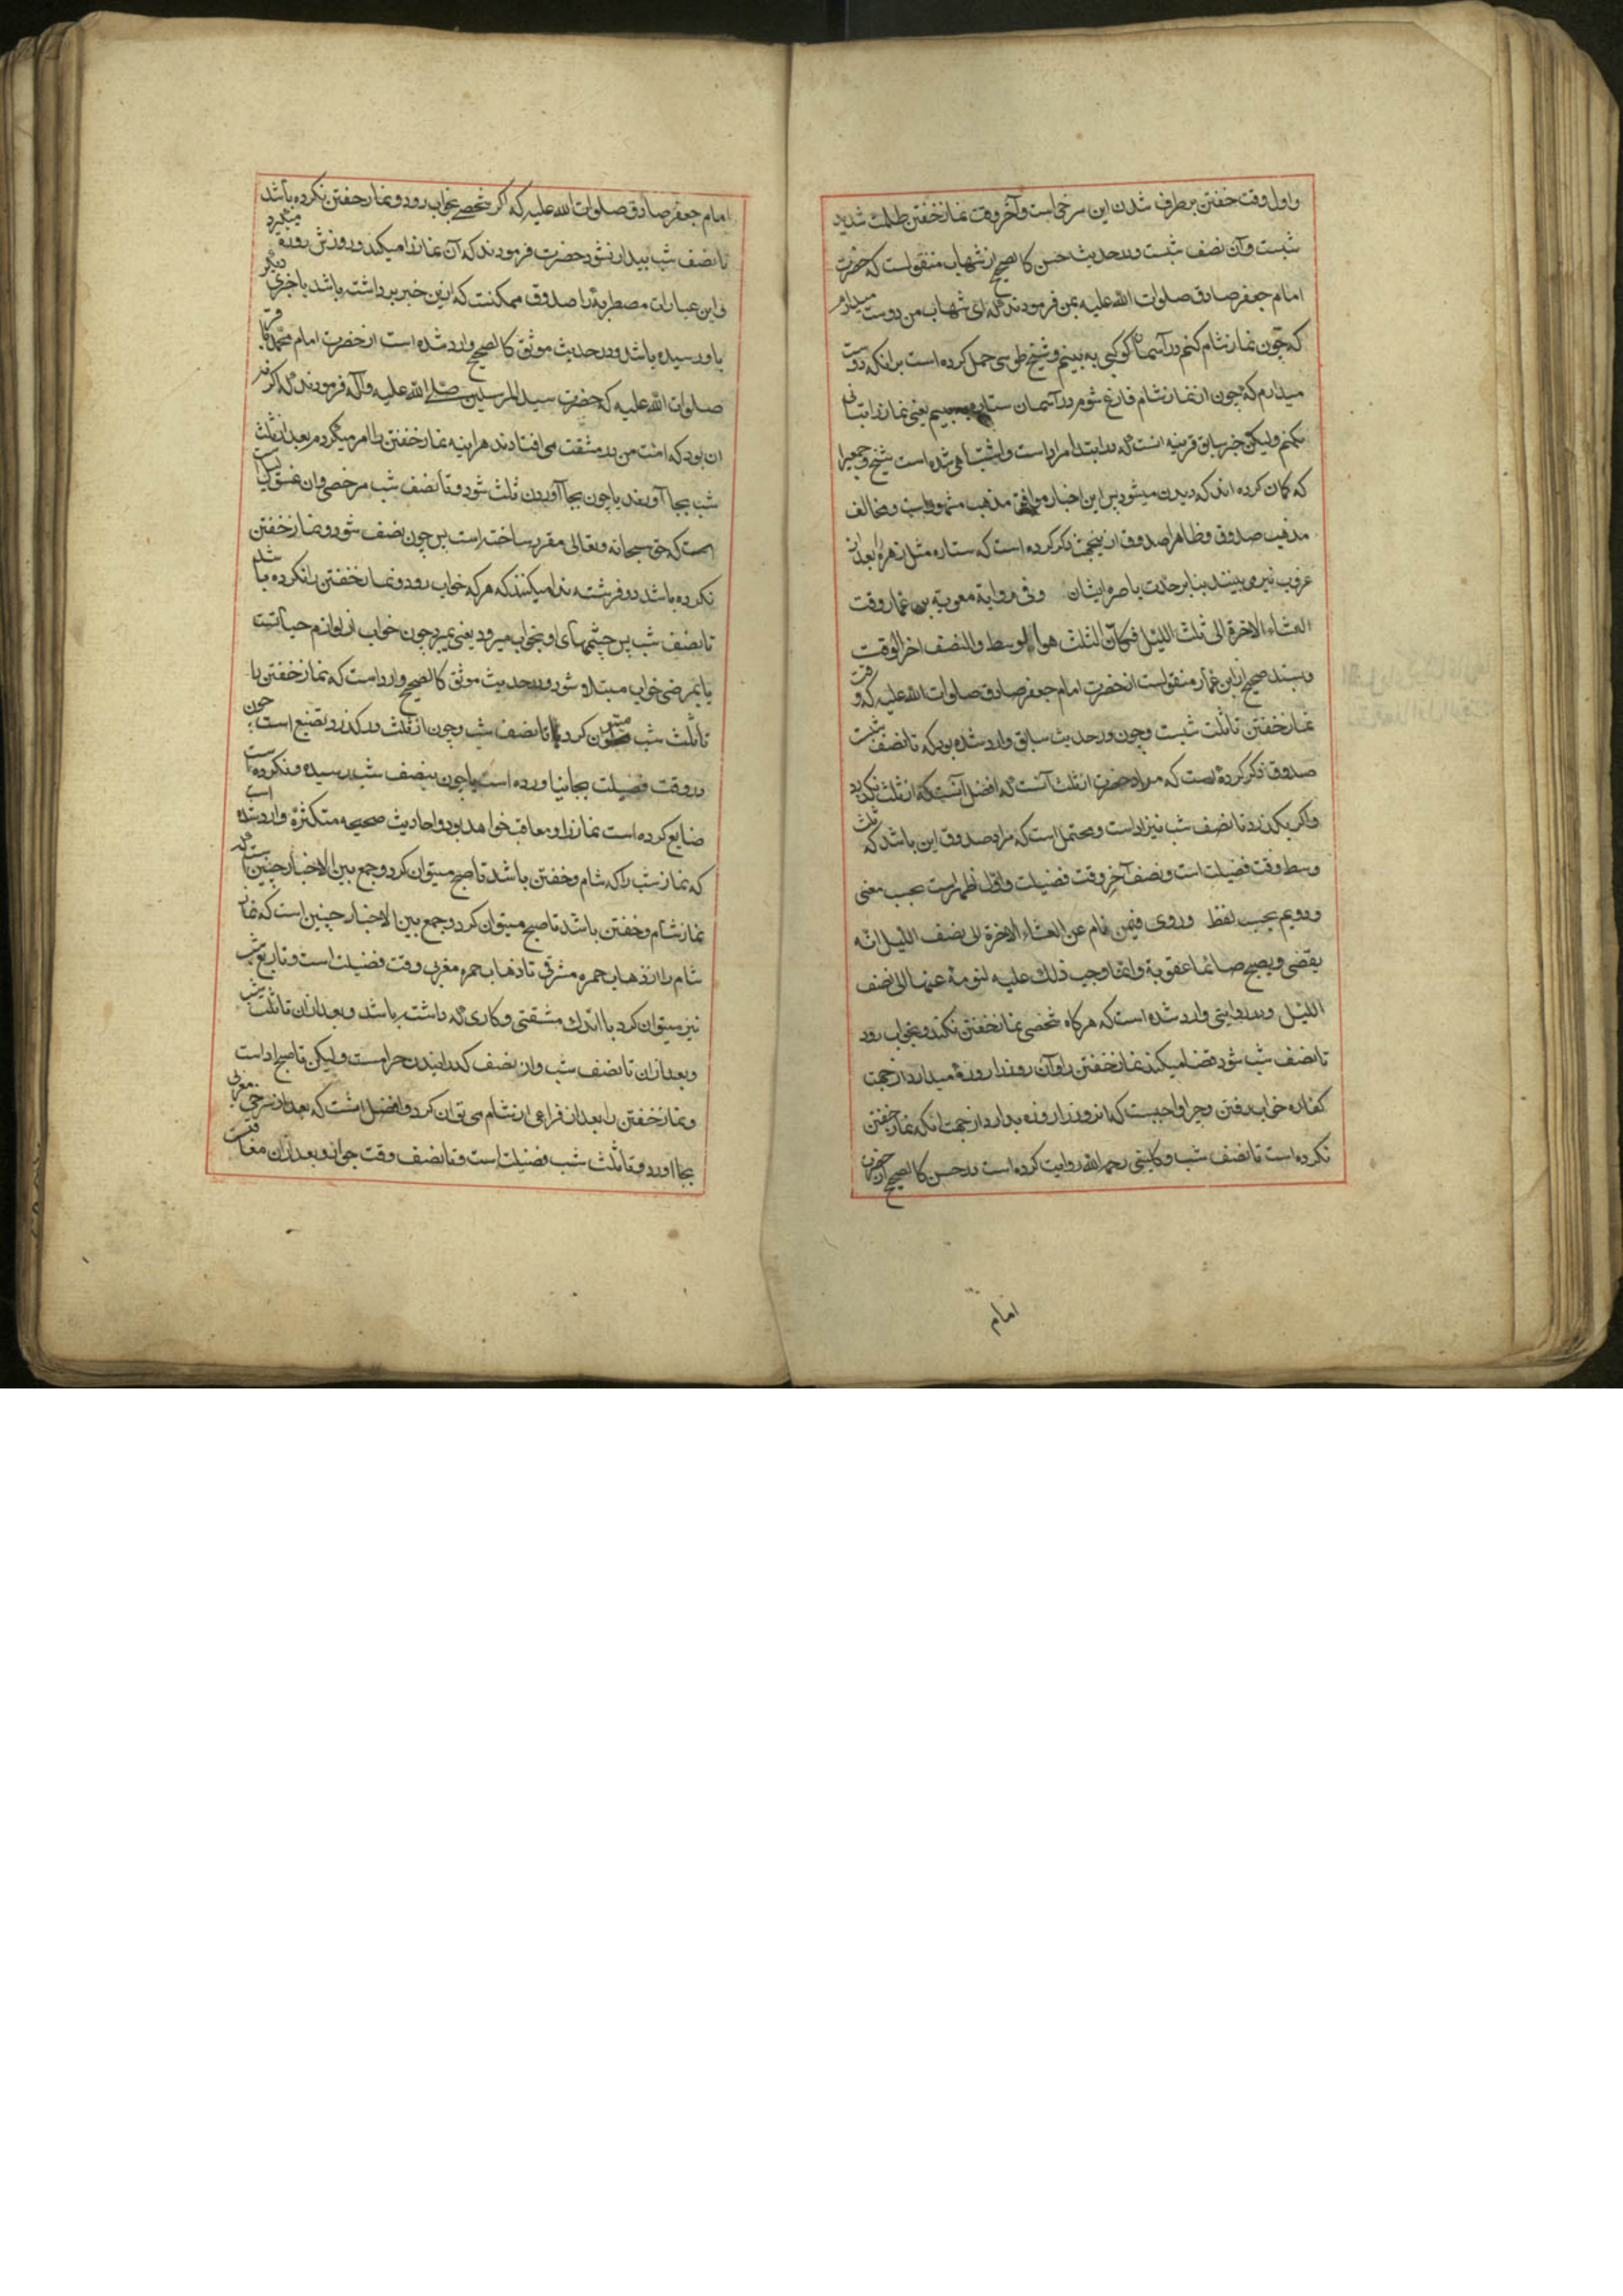 واول وقت خفتن برطرف شدن این سرخی است وآخر وقت نماز خفتن ظلمت شدید
شبست وآن نصف شبست ودر حدیث حسن کالصحیح از شهاب منقولست که حضرت
امام جعفر صادق صلوات الله علیه بمن فرمودند که ای شهاب من دوست میدارم
که چون نماز شام کنم در آسمان کوکبی به بینم وشیخ طوسی حمل کرده است برانکه دوست
میدارم که چون از نماز شام فارغ شوم در آسمان ستاره به بینم یعنی نماز را بتانی
بکنم ولیکن خبر سابق قرینه انست که در ابتدا مراد است شیخ وجمعی را
که کمان کرده اند که دیدن میشود پس این اخبار موافق مذهب مشهور است ومخالف
مذهب صدوق وظاهرا صدوق ازینجهت ذکر کرده است که ستاره مثل زهره را بعد از
غروب نیز می بینند بنابر حدت باصره ایشان وفی روایة معویة بن عمار وقت
العشاء الاخرة الی ثلث اللیل فکان الثلث هو الاوسط والنصف اخر الوقت
وبسند صحیح از ابن عمار منقولست از حضرت امام جعفر صادق صلوات الله علیه که وقت
نماز خفتن تا ثلث شبست وچون در حدیث سابق وارد شده بود که تا نصف شبست
صدوق ذکر کرده است که مراد حضرت از ثلث آنست که افضل آنست که از ثلث نکذرد
واکر بکذرد تا نصف شب نیز اداست ومحتمل است که مراد صدوق این باشد که ثلث
وسط وقت فضیلت است ونصف آخر وقت فضیلت واول اظهر است بحسب معنی
ودویم بحسب لفظ وروی فیمن نام عن العشاء الاخرة الی نصف اللیل انه
یقضی ویصبح صائما عقوبة وانما وجب ذلک علیه لنومه عنها الی نصف
اللیل ودر روایتی وارد شده است که هرکاه شخصی نماز خفتن نکند وبخواب رود
تا نصف شب شود قضا میکند نماز خفتن را وآن روز را روزه میدارد از جهت
کفاره خواب رفتن وچرا واجبست که انروز را روزه بدارد از جهت انکه نماز خفتن
نکرده است تا نصف شب وکلینی رحمه الله روایت کرده است در حسن کالصحیح از حضرت
امام
امام جعفر صادق صلوات الله علیه که اکر شخصی بخواب رود ونماز خفتن نکرده باشد
تا نصف شب بیدار نشود حضرت فرمودند که آن نماز را میکند وروزش روزه میکیرد
واین عبارات مضطربه را صدوق ممکنست که ازین خبر برداشته باشد یا خبری دیکر
باو رسیده باشد ودر حدیث موثق کالصحیح وارد شده است از حضرت امام محمد باقر
صلوات الله علیه که حضرت سید المرسلین صلی الله علیه وآله فرمودند که اکر نه
ان بود که امت من در مشقت می افتادند هراینه نماز خفتن را امر میکردم بعد از ثلث
شب بجا آورند یا چون بجا آوردن ثلث شود وتا نصف شب مرخصی وان غسق لیل
است که حق سبحانه وتعالی مقرر ساخته است پس چون نصف شود ونماز خفتن
نکرده باشد دو فرشته ندا میکنند که هرکه خواب رود ونماز خفتن را نکرده باشد
تا نصف شب پس چشمهای او بخواب میرود یعنی بمیرد چون خواب از لوازم حیاتست
یا بمرضی خواب مبتلا شود ودر حدیث موثق کالصحیح وارد است که نماز خفتن را
تا ثلث شب میتوان کرد یا تا نصف شب وچون از ثلث درکذرد تضییع است چون
در وقت فضیلت بجا نیاورده است یا چون بنصف شب رسیده ونکرده است
ضایع کرده است نماز را ومعاقب خواهد بود واحادیث صحیحه متکثره وارد شده است
که نماز شب را که شام وخفتن باشد تا صبح میتوان کرد وجمع بین الاخبار چنین است که
نماز شام وخفتن باشد تا صبح میتوان کرد وجمع بین الاخبار چنین است که نماز
شام را از ذهاب حمره مشرقی تا ذهاب حمره مغربی وقت فضیلت است وتا ربع شب
نیز میتوان کرد با اندک مشقتی وکاری که داشته باشد وبعد ازان تا ثلث شب
وبعد ازان تا نصف شب واز نصف کذرانیدن حرامست ولیکن تا صبح اداست
ونماز خفتن را بعد از فراغ از شام می توان کرد وافضل انست که بعد از سرخی مغربی
بجا اورد وتا ثلث شب فضیلت است وتا نصف وقت جواز وبعد ازان معاقب